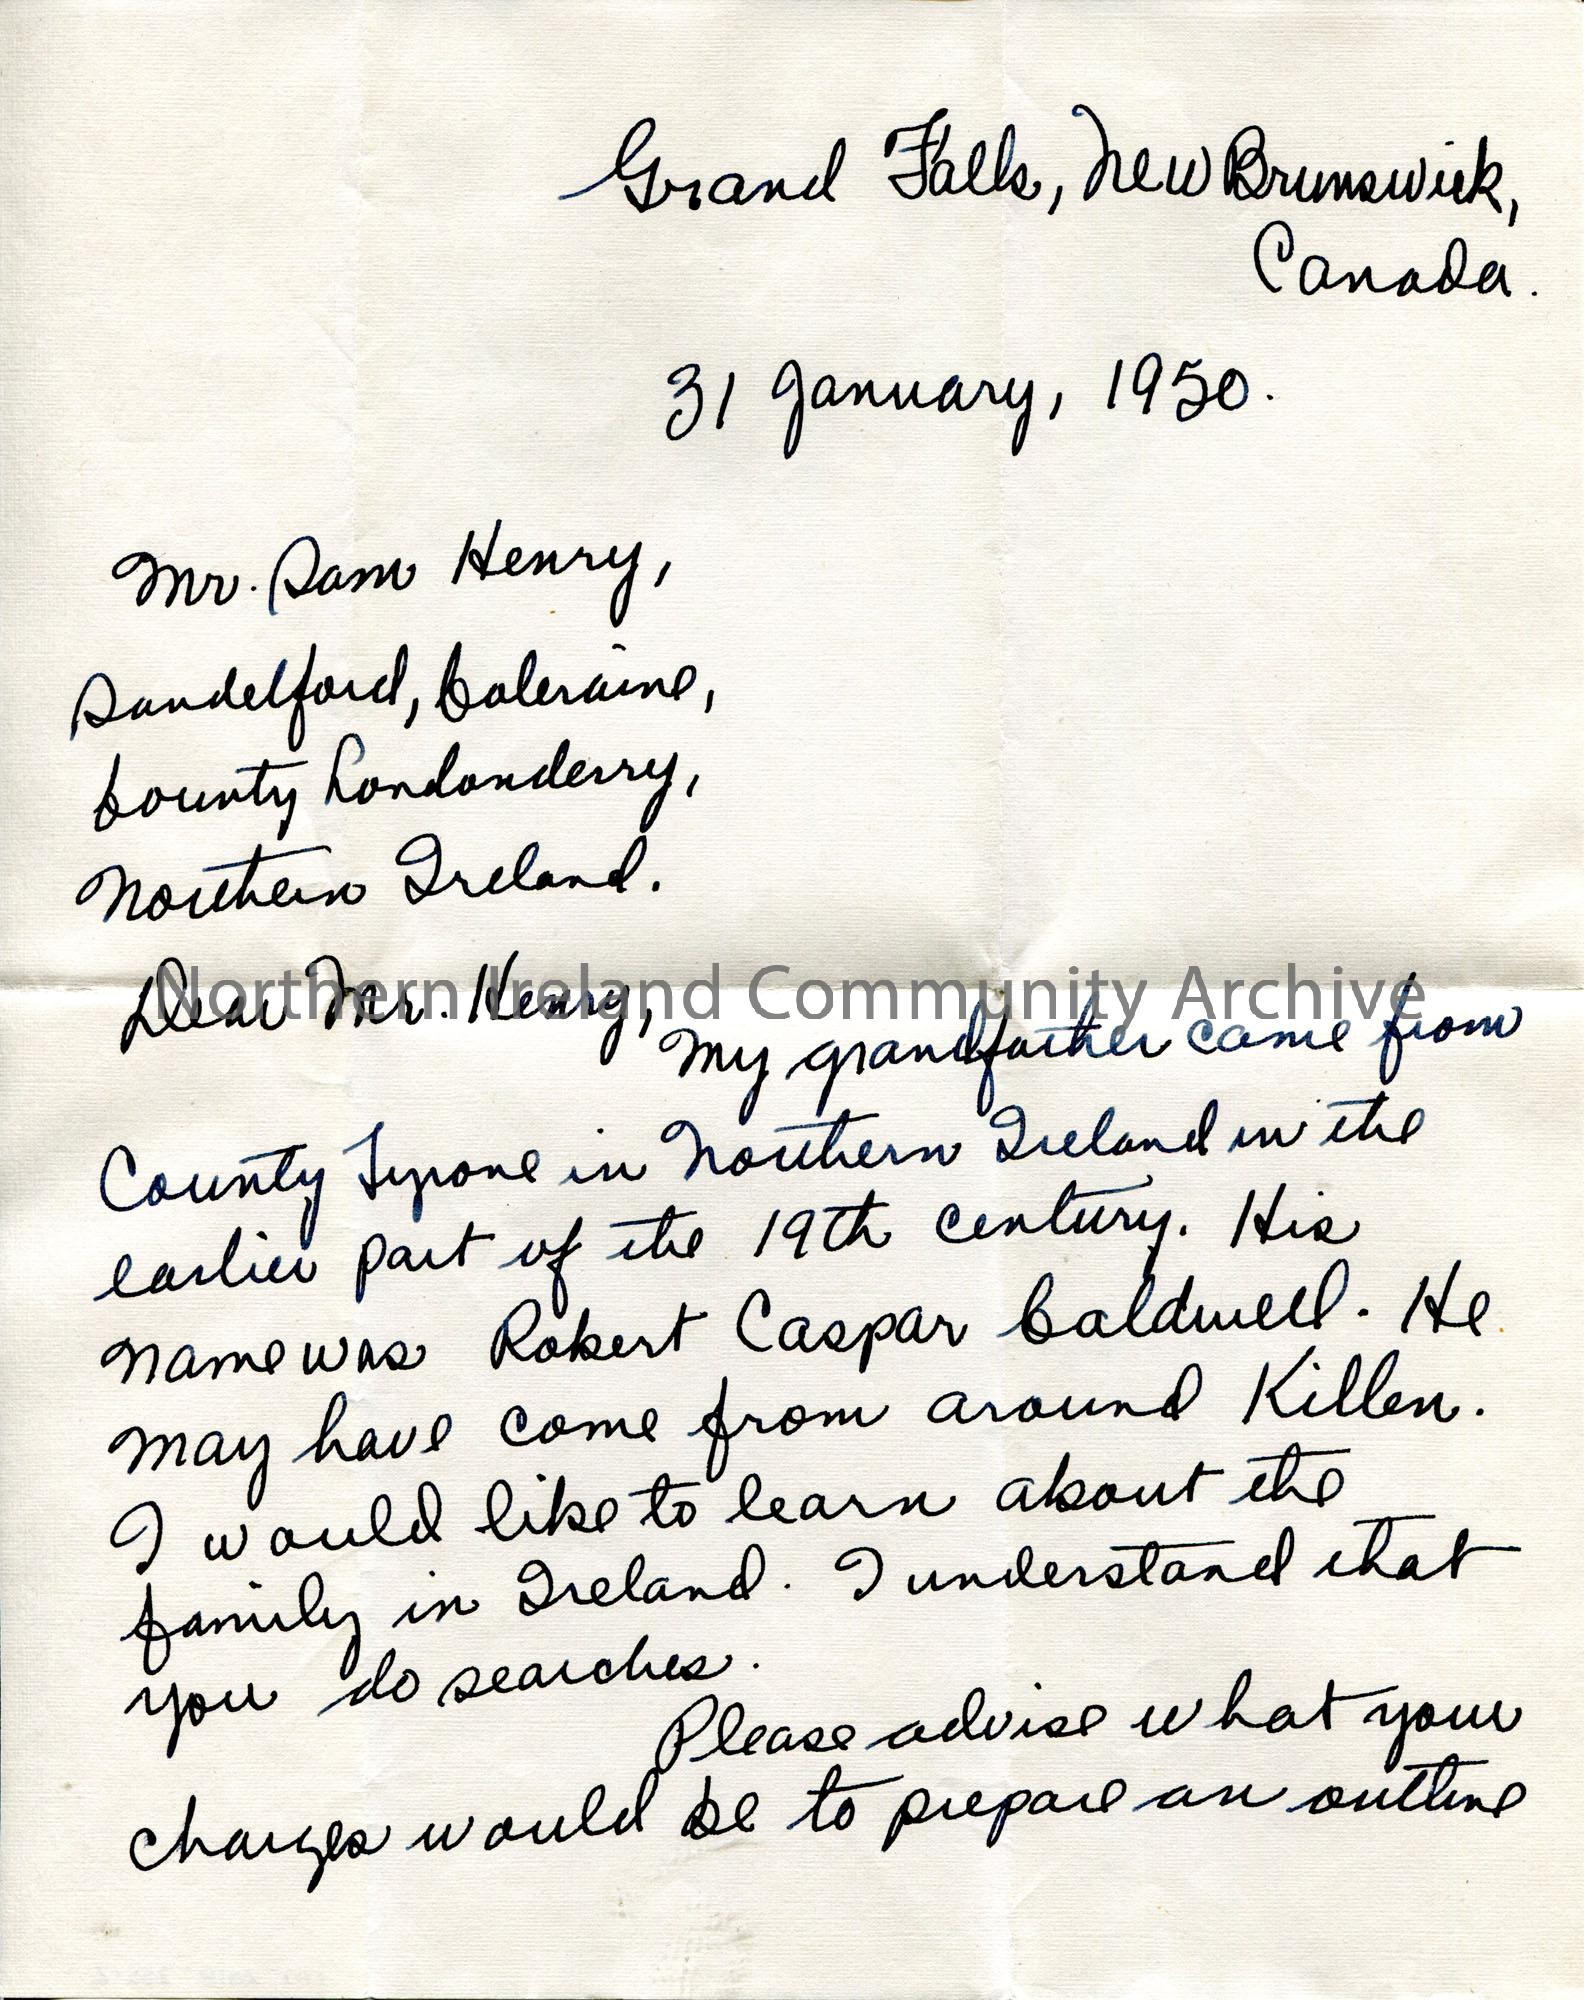 Grand Falls, New Brunswick,
Canada.
31 January, 1950.
Mr. Sam Henry,
Sandelford, Coleraine,
County Londonderry,
Northern Ireland.
Dear Mr. Henry,
Northern Ireland Community Archive
My grandfather came from
County Tyrone in Northern Ireland in the
earlier part of the 19th century. His
name was Robert Caspar Caldwell. He
may have come from around Killen.
I would like to learn about the
family in Ireland. I understand that
you do searches.
Please advise what your
charges would be to prepare an outline